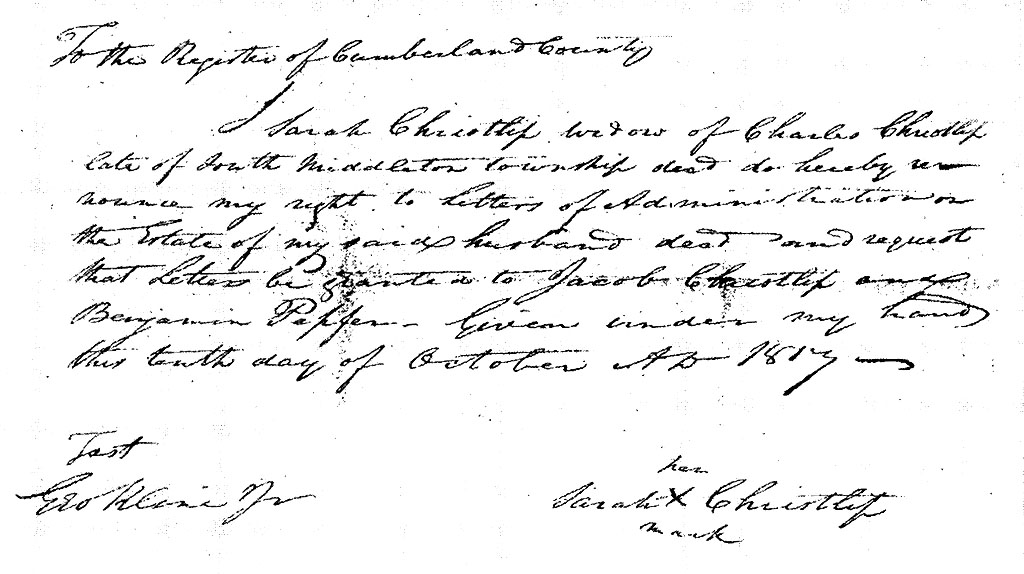 To the Register of Cumberland County
I Sarah Christlip widow of Charles Christlip
late of South Middleton township decd do hereby re
nounce my right to Letters of Administration on
the Estate of my said husband decd and request
that Letters be granted to Jacob Christlip and
Benjamin Peffer - Given under my hand
this tenth day of October AD 1817 —
Test
Geo Kline Jr
her
Sarah X Christlip
mark